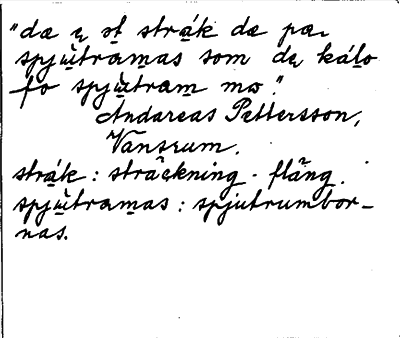 "da ę ət strą́k da pa
spjų̀tramas som dę kálo
fo spjų̀tram mo."
Andareas Pettersson,
Vansrum.
strą́k : sträckning - fläng.
spjų̀tramas : spjutrumbor-
nas.